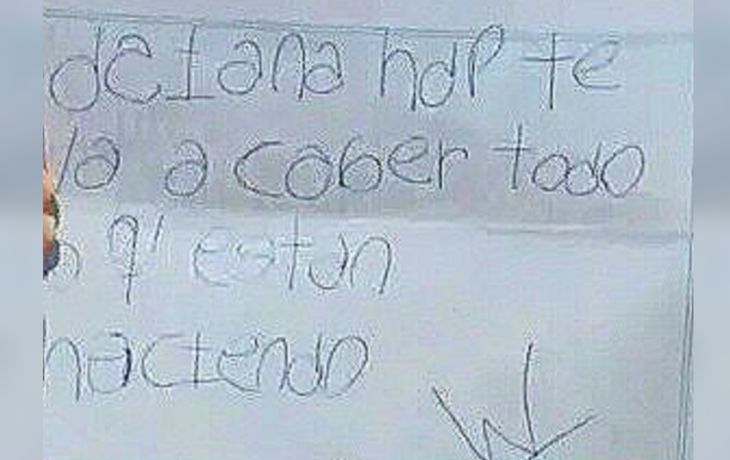 deIana hdp te
va a caber todo
lo q' estan
haciendo